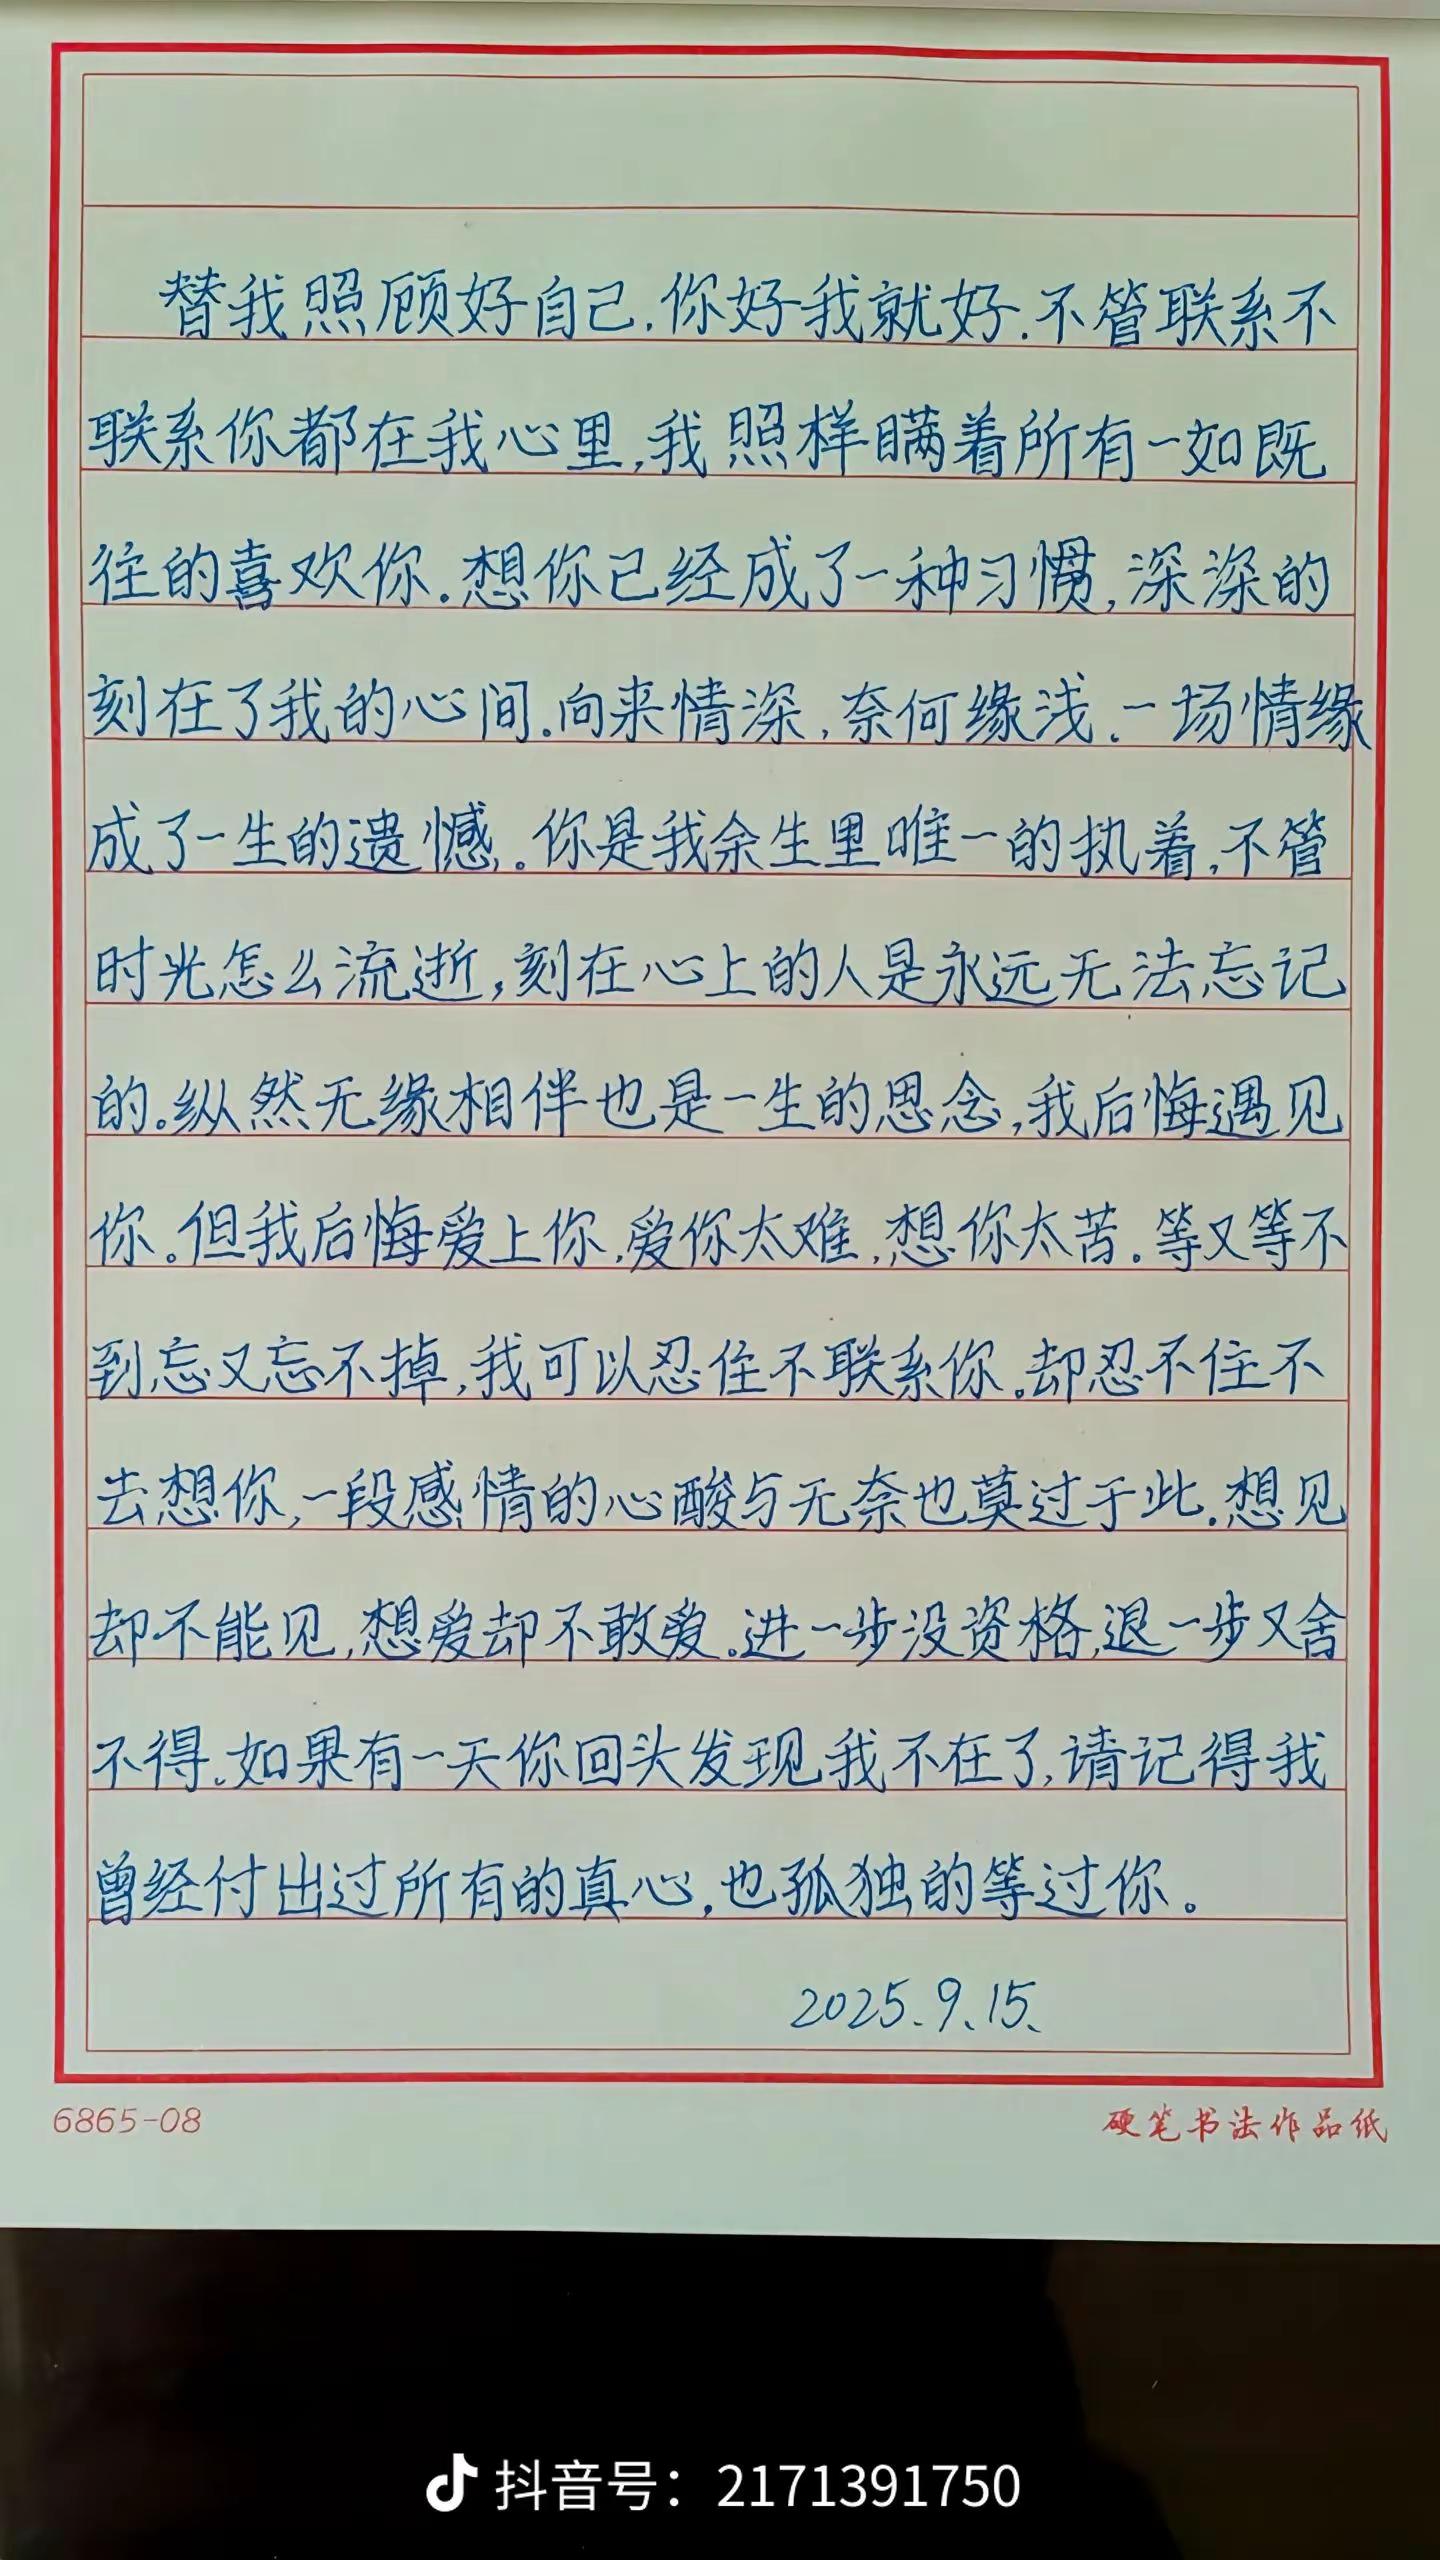 替我照顾好自己.你好我就好.不管联系不
联系你都在我心里,我照样瞒着所有一如既
往的喜欢你.想你已经成了一种习惯,深深的
刻在了我的心间.向来情深,奈何缘浅.一场情缘
成了一生的遗憾。你是我余生里唯一的执着,不管
时光怎么流逝,刻在心上的人是永远无法忘记
的。纵然无缘相伴也是一生的思念,我后悔遇见
你。但我后悔爱上你,爱你太难,想你太苦。等又等不
到忘又忘不掉,我可以忍住不联系你。却忍不住不
去想你,一段感情的心酸与无奈也莫过于此.想见
却不能见,想爱却不敢爱。进一步没资格,退一步又舍
不得。如果有一天你回头发现我不在了,请记得我
曾经付出过所有的真心,也孤独的等过你。
2025、9、15、
6865-08
硬笔书法作品纸
抖音号：2171391750